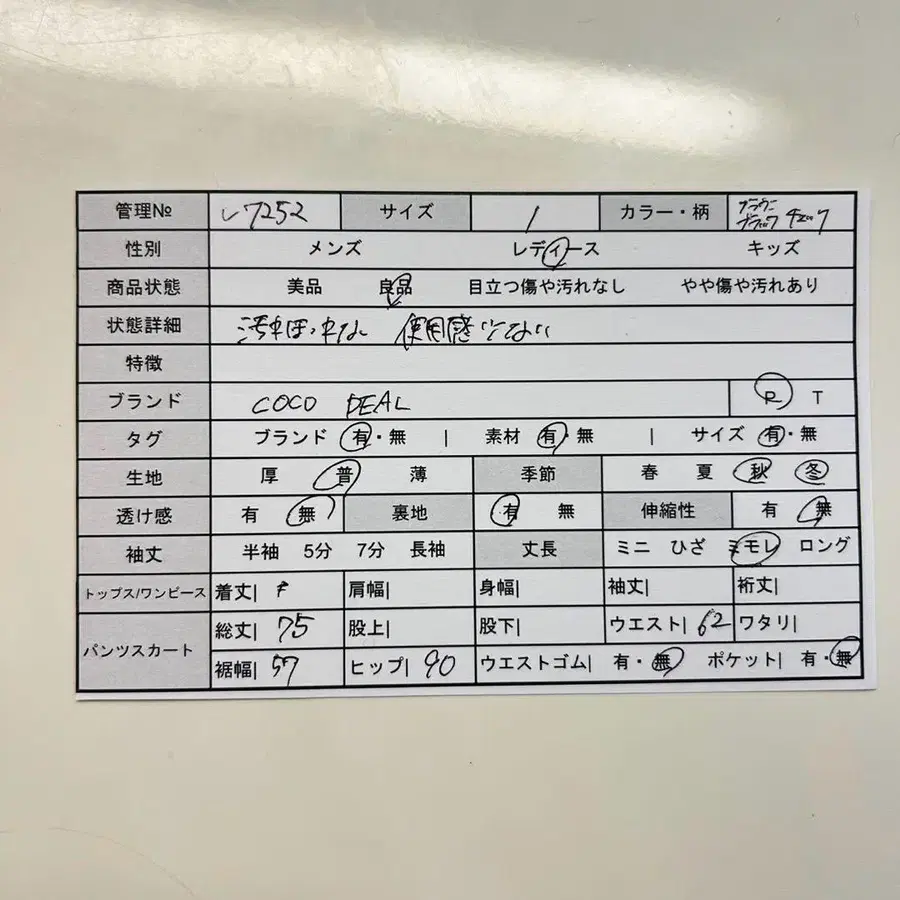 管理№ レ7252 サイズ 1 カラー・柄 ブラウン ブラック チェック
性別 メンズ レディース キッズ
商品状態 美品 良品 目立つ傷や汚れなし やや傷や汚れあり
状態詳細 汚れほつれなし 使用感 ない
特徴
ブランド COCO DEAL R T
タグ ブランド 有・無 | 素材 有・無 | サイズ 有・無
生地 厚 普 薄 季節 春 夏 秋 冬
透け感 有 無 裏地 有 無 伸縮性 有 無
袖丈 半袖 5分 7分 長袖 丈長 ミニ ひざ ミモレ ロング
トップス/ワンピース 着丈| 肩幅| 身幅| 袖丈| 裄丈|
パンツスカート 総丈| 75 股上| 股下| ウエスト| 62 ワタリ|
裾幅| 57 ヒップ| 90 ウエストゴム| 有・無 ポケット| 有・無